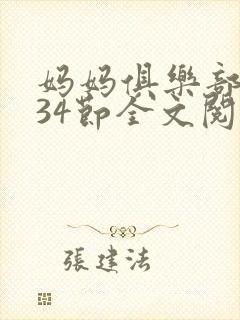 妈妈俱樂部
34節全文閱
張建法